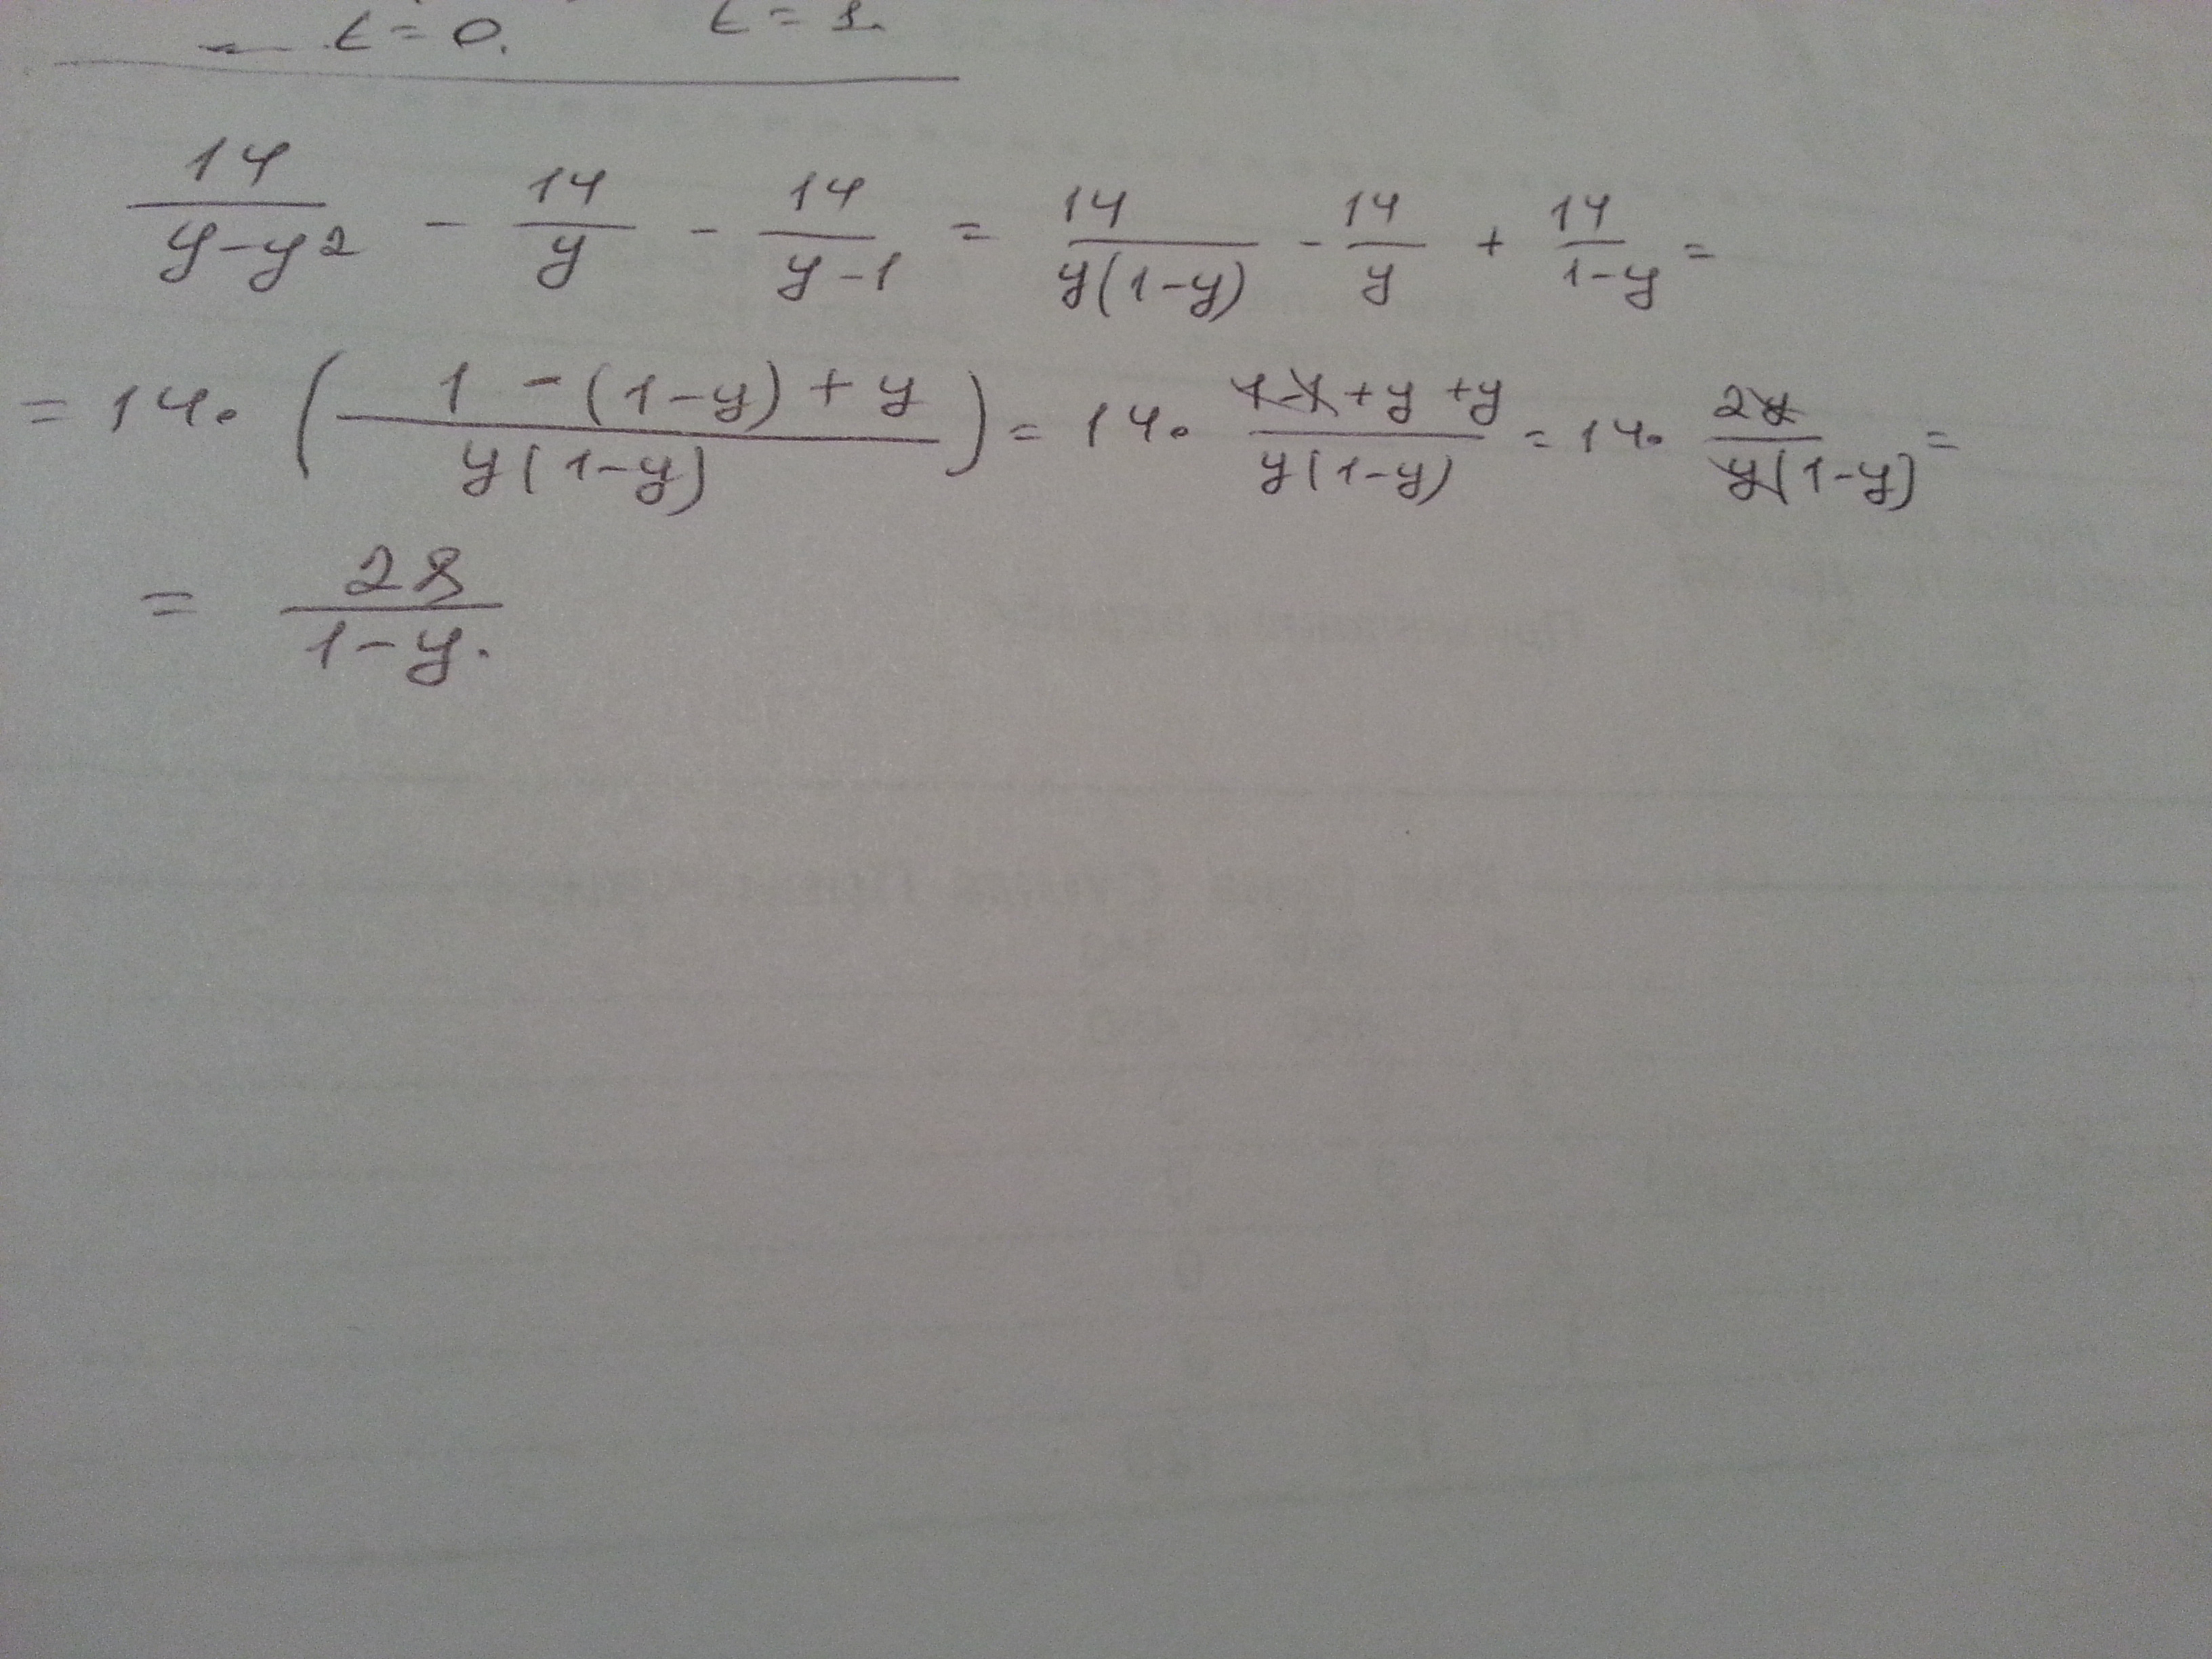 t = 0. t = 1.
14/(y-y²) - 14/y - 14/(y-1) = 14/(y(1-y)) - 14/y + 14/(1-y) =
= 14 · ( (1 - (1-y) + y)/(y(1-y)) ) = 14 · (1-1+y+y)/(y(1-y)) = 14 · 2y/(y(1-y)) =
= 28/(1-y).